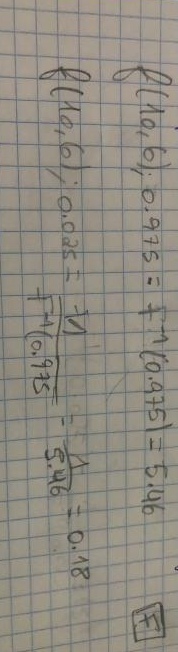 f(10,6); 0.975 = F^-1(0.975) = 5.46
F
f(10,6); 0.025 = 1/F^-1(0.975) = 1/5.46 = 0.18